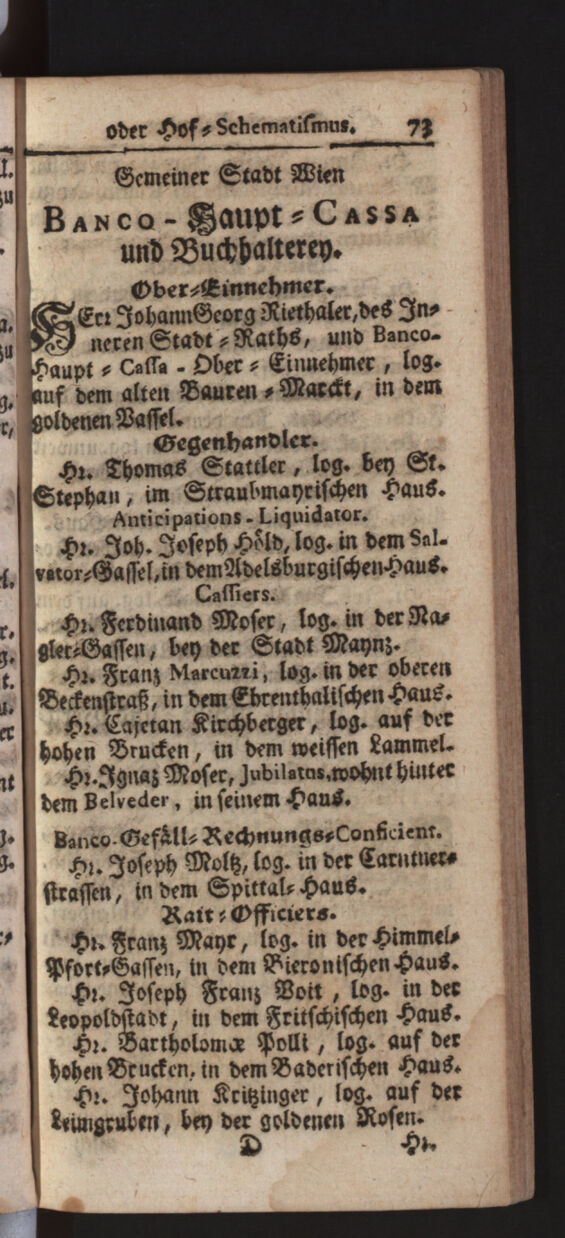 oder Hof-Schematismus. 73
Gemeiner Stadt Wien
BANCO-Haupt-CASSA
und Buchhalterey.
Ober-Einnehmer.
HErr Johann Georg Riethaler, des In-
neren Stadt-Raths, und Banco-
Haupt-Cassa-Ober-Einnehmer, log.
auf dem alten Bauren-Marckt, in dem
goldenen Vassel.
Gegenhandler.
Hr. Thomas Stattler, log. bey St.
Stephan, im Straubmayrischen Haus.
Anticipations-Liquidator.
Hr. Joh. Joseph Höld, log. in dem Sal-
vator-Gassel, in dem Adelsburgischen Haus.
Cassiers.
Hr. Ferdinand Moser, log. in der Na-
gler-Gassen, bey der Stadt Maynz.
Hr. Franz Marcuzzi, log. in der oberen
Beckenstraß, in dem Ehrenthalischen Haus.
Hr. Cajetan Kirchberger, log. auf der
hohen Brucken, in dem weissen Lammel.
Hr. Ignaz Moser, Jubilatus, wohnt hinter
dem Belveder, in seinem Haus.
Banco-Gefäll-Rechnungs-Conficient.
Hr. Joseph Moltz, log. in der Carntner-
strassen, in dem Spittal-Haus.
Rait-Officiers.
Hr. Franz Mayr, log. in der Himmel-
Pfort-Gassen, in dem Bieronischen Haus.
Hr. Joseph Franz Voit, log. in der
Leopoldstadt, in dem Fritschischen Haus.
Hr. Bartholomæ Polli, log. auf der
hohen Brucken, in dem Baderischen Haus.
Hr. Johann Kritzinger, log. auf der
Leimgruben, bey der goldenen Rosen.
D Hr.